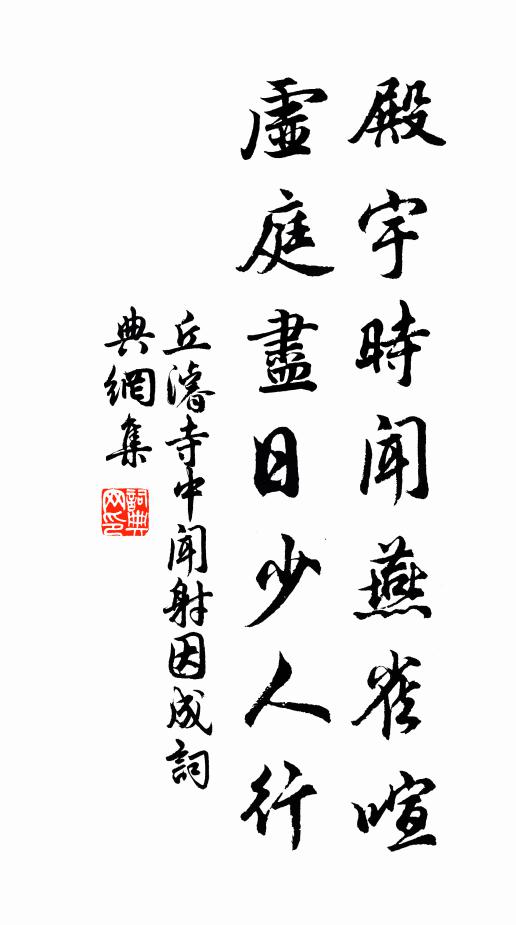 殿宇時聞燕雀喧
虛庭盡日少人行
丘濬寺中聞射因成詞
典網集
詞典網印